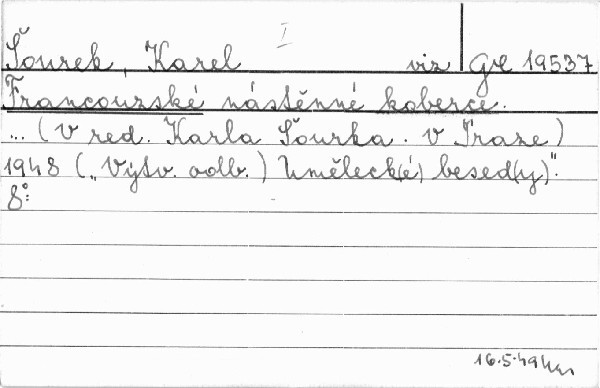 I
Šourek, Karel viz Gd 19537
Francouzské nástěnné koberce.
... (V red. Karla Šourka. V Praze)
1948 („Výtv. odb.) Uměleck(é) besed(y)".
8°.
16.5.49